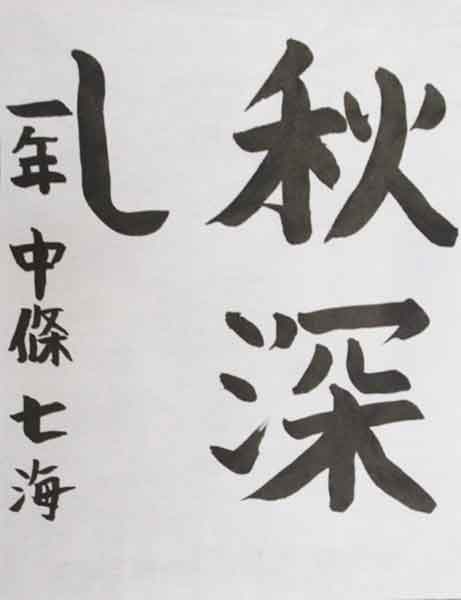 秋深
し
一年 中條 七海